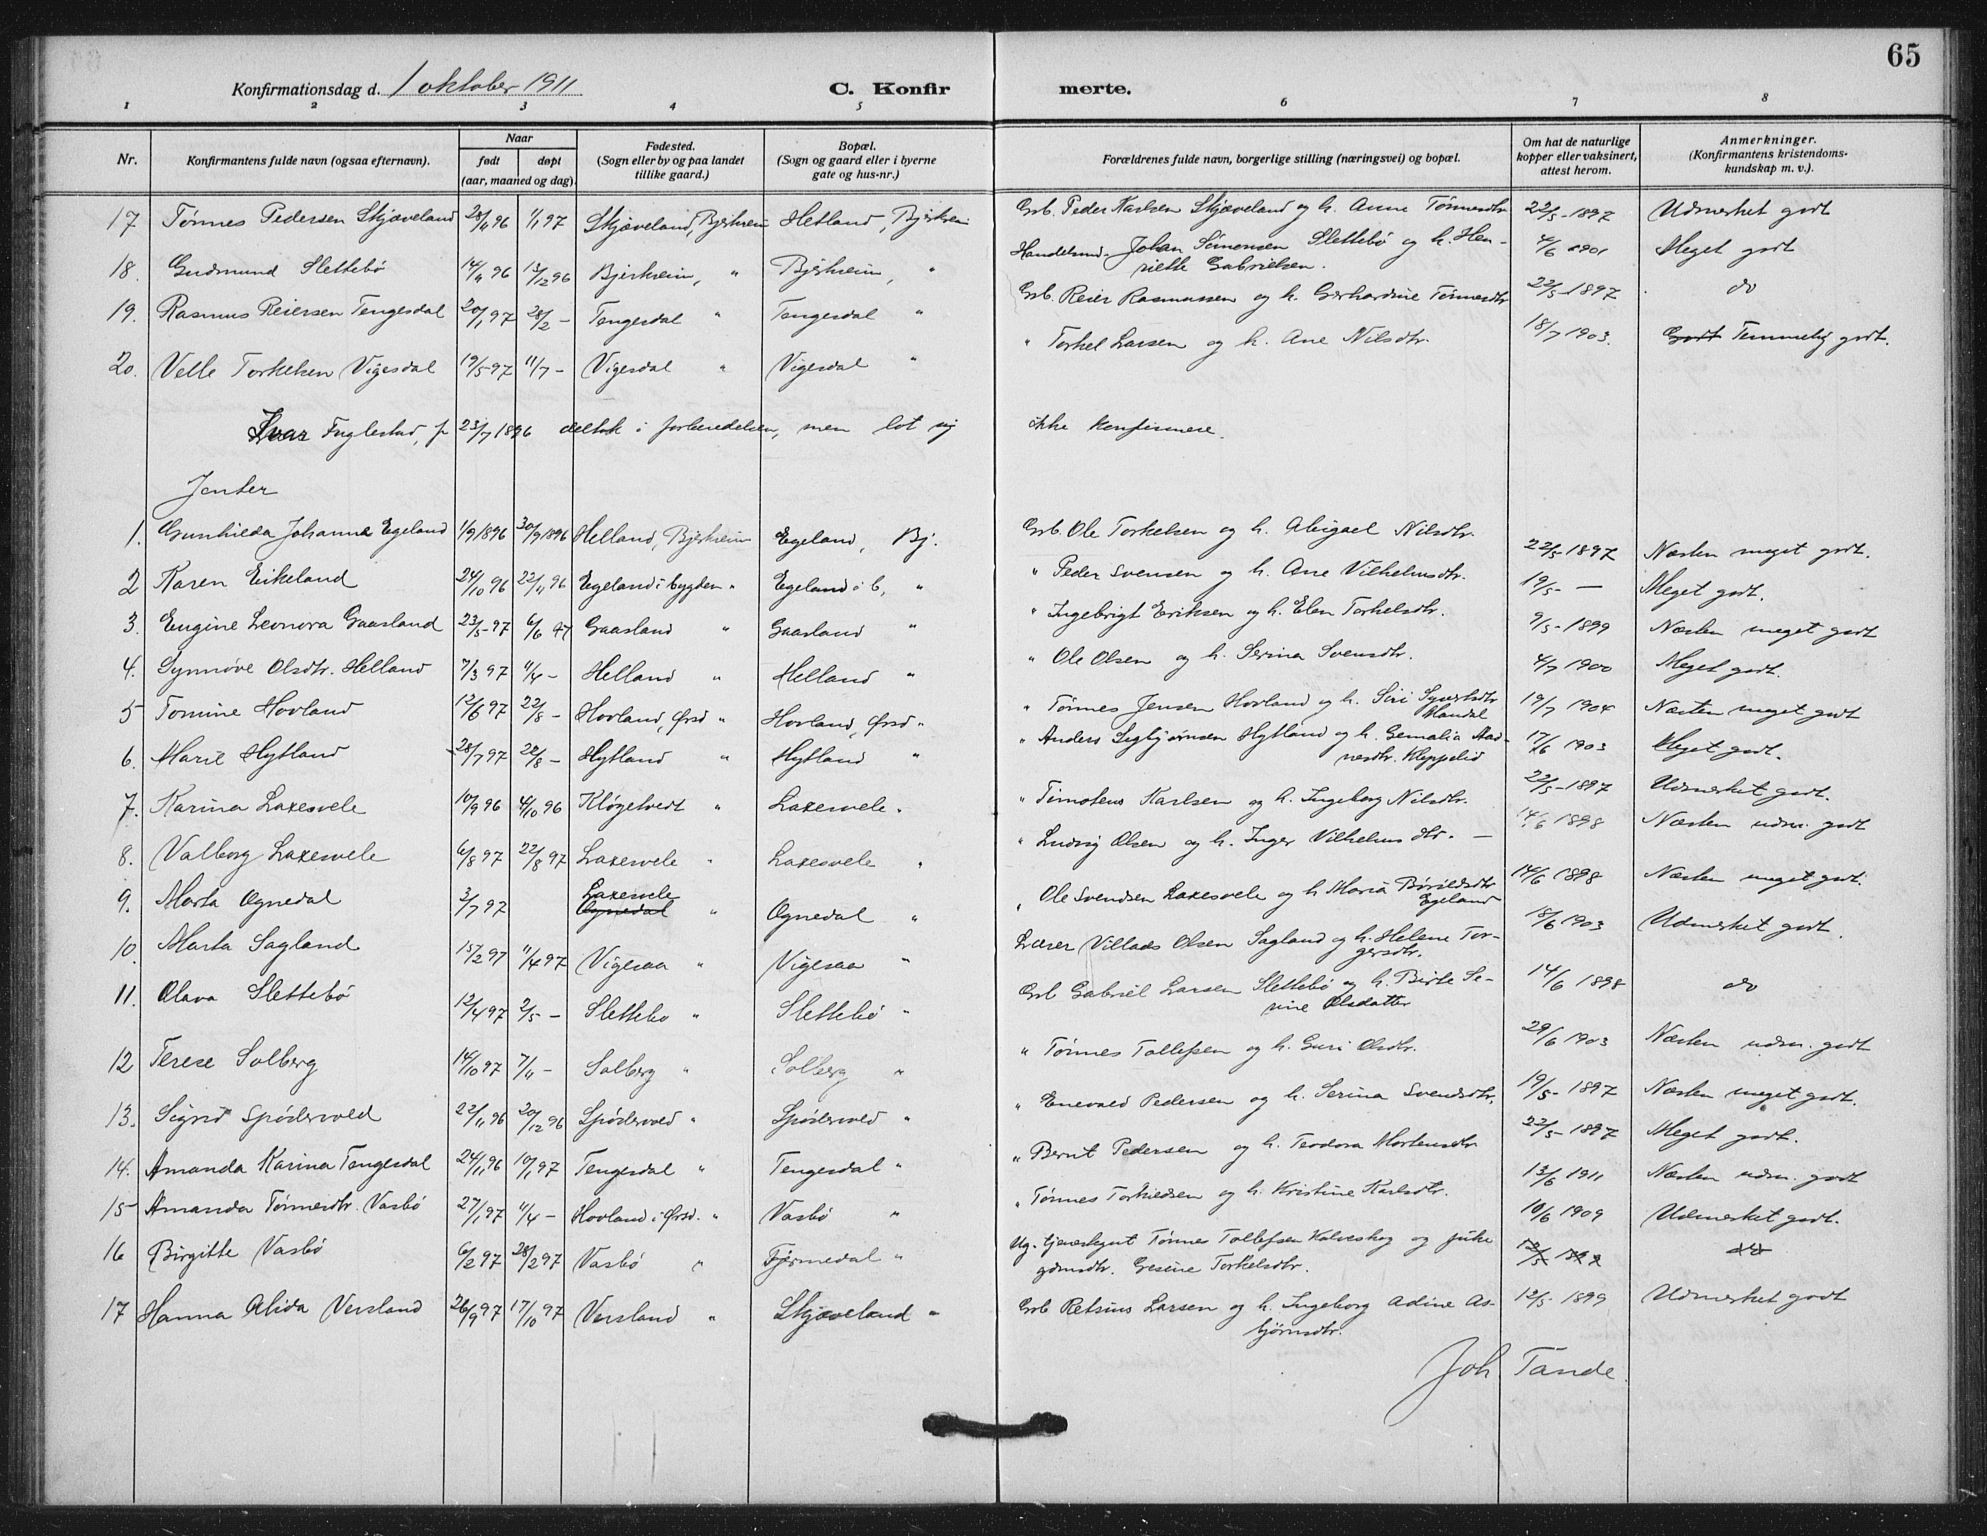 65
Konfirmationsdag d. 1 oktober 1911 C. Konfir merte.
1 2 3 4 5 6 7 8
Nr. Konfirmantens fulde navn (ogsaa efternavn). Naar født døpt (aar, maaned og dag). Fødested. (Sogn eller by og paa landet tillike gaard.) Bopæl. (Sogn og gaard eller i byerne gate og hus-nr.) Forældrenes fulde navn, borgerlige stilling (næringsvei) og bopæl. Om hat de naturlige kopper eller vaksinert, attest herom. Anmerkninger. (Konfirmantens kristendomskundskap m. v.).
17 Tønnes Pedersen Skjæveland 28/11 96 1/1 97 Skjæveland, Bjerkreim Hetland, Bjerkreim Grb. Peder Karlsen Skjæveland og h. Anne Tønnesdtr 22/5-1897 Udmerket godt
18. Gudmund Slettebø 14/11 96 13/12 96 Bjerkreim, " Bjerkreim, " Handelsmd. Johan Simonsen Slettebø og h. Hen-
riette Gabrielsen. 4/6 1901 Meget godt
19. Rasmus Reiersen Tengesdal 20/1 97 28/2 - Tengesdal " Tengesdal " Grb. Reier Rasmussen og h. Gerhardine Tønnesdtr 22/5-1897 do
20. Velle Torkelsen Vigesdal 19/5-97 11/7 - Vigesdal " Vigesdal " " Torkel Larsen og h. Ane Nilsdtr. 18/7 1903. Godt Temmelig godt.
Ivar Fuglestad, f 23/7 1896 deltok i forberedelsen, men lot sig ikke konfirmere.
Jenter
1. Gunhilda Johanne Egeland 1/9 1896 30/9 1896 Helland, Bjerkreim Egeland, Bj. Grb. Ole Torkelsen og h. Abigael Nilsdtr. 22/5-1897 Næsten meget godt.
2 Karen Eikeland 24/10 96 22/11 96 Egeland i bygden " Egeland i b, " " Peder Svensen og h. Ane Vilhelmsdtr. 19/5- — Meget godt.
3. Eugine Leonora Gaasland 23/5-97 6/6 97 Gaasland " Gaasland " " Ingebrigt Eriksen og h. Elen Torkelsdtr. 9/5-1899 Næsten meget godt
4. Synnøve Olsdtr. Helland 7/3 97 4/4 - Helland " Helland " " Ole Olsen og h. Serina Svensdtr. 4/7 1900 Meget godt.
5 Tomine Hovland 12/6 97 22/8 - Hovland, Ørsd " Hovland, Ørsd " " Tønnes Jensen Hovland og h. Siri Syvertsdtr
Mandal 19/7 1904 Næsten meget godt
6. Marie Hytland 28/7 97 22/8 - Hytland " Hytland " " Anders Sigbjørnsen Hytland og h. Gemalia Aad-
nesdtr. Kleppelid 17/6 1903 Meget godt.
7. Karina Laxesvele 10/9 96 4/10 96 Kløgetvedt " Laxesvele " " Timoteus Karlsen og h. Ingeborg Nilsdtr. 22/5-1897 Udmerket godt.
8. Valborg Laxesvele 6/8 97 22/8 97 Laxesvele " Laxesvele " " Ludvig Olsen og h. Inger Vilhelmsdtr. — 14/6 1898 Næsten udm. godt
9. Marta Ognedal 3/7 97 Laxesvele
Ognedal " Ognedal " " Ole Svendsen Laxesvele og h. Maria Børildsdtr
Egeland 14/6 1898 Næsten meget godt.
10. Marta Sagland 15/2 97 11/4 97 Vigesaa " Vigesaa " Lærer Villads Olsen Sagland og h. Helene Tor-
gersdtr. 18/6 1903 Udmerket godt.
11. Olava Slettebø 12/4 97 2/5 - Slettebø " Slettebø " Grb Gabriel Larsen Slettebø og h. Birte Se-
rine Olsdatter 14/6 1898 do
12 Terese Solberg 14/10 97 7/11 - Solberg " Solberg " " Tønnes Tollefsen og h. Guri Olsdtr. 29/6 1903 Næsten udm. godt
13. Sigrid Spødervold 22/11 96 20/12 96 Spødervold " Spødervold " " Enevald Pedersen og h. Serina Svendsdtr. 19/5-1897 Næsten meget godt.
14. Amanda Karina Tengesdal 24/11 96 10/1 97 Tengesdal " Tengesdal " " Bernt Pedersen og h. Teodora Mortensdtr 22/5-1897 Meget godt.
15 Amanda Tønnesdtr. Vasbø 27/1 97 4/4 - Hovland i Ørsd. " Vasbø " " Tønnes Torkildsen og h. Kristine Karlsdtr. 13/6 1911 Næsten udm. godt
16 Birgitte Vasbø 6/2 97 28/2 97 Vasbø " Fjermedal " Ug. tjenestegut Tønnes Tollefsen Kalveskog og pike
gdmsdtr. Gesine Torkelsdtr. 10/6 1909 Udmerket godt.
17 Hanna Alida Versland 26/9 97 17/10 97 Versland " Skjæveland " Grb Retsius Larsen og h. Ingeborg Adine As-
bjørnsdtr. 12/5-1899 Udmerket godt
Joh Tande.